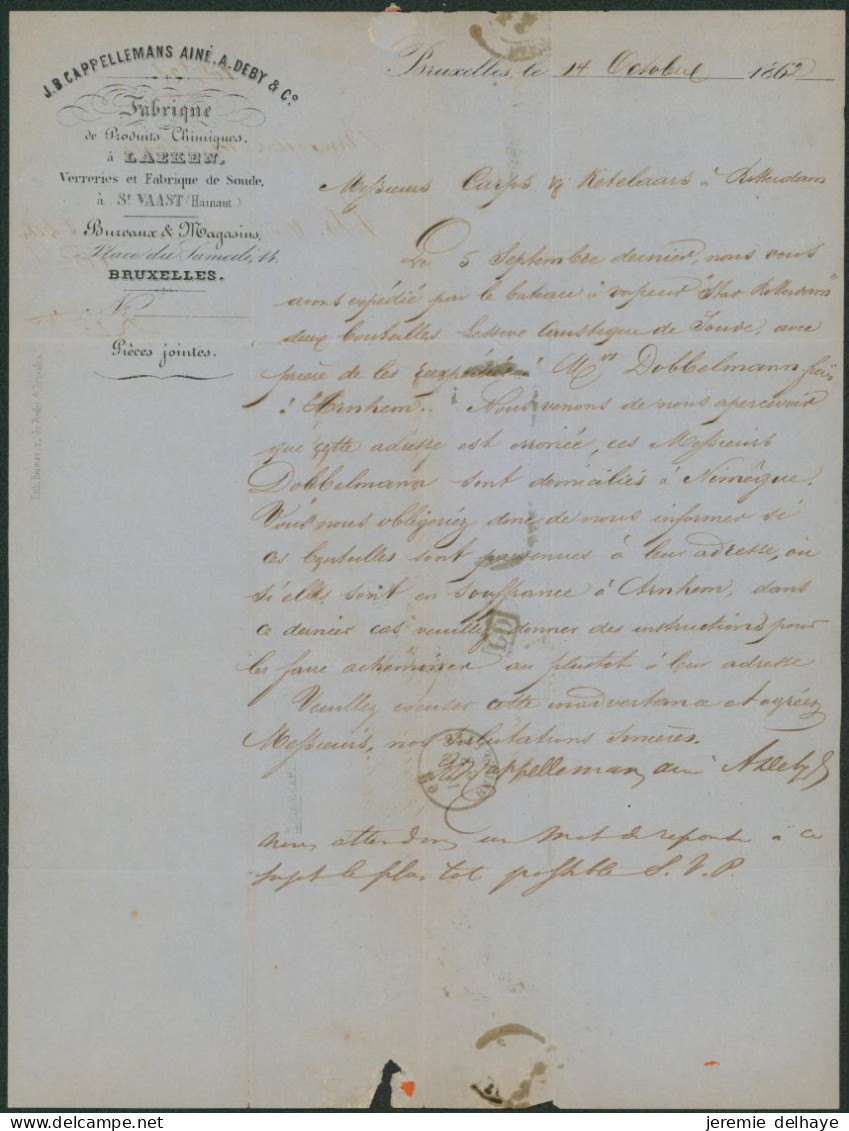 J. B. CAPPELLEMANS AINÉ, A. DEBY & Cº
Fabrique
de Produits Chimiques,
à LAEKEN,
Verreries et Fabrique de Soude,
à St VAAST (Hainaut)
Bureaux & Magasins,
Place du Samedi, 14.
BRUXELLES.
Nº
Pièces jointes.
Bruxelles, le 14 Octobre 1862
Messieurs Carps & Ketelaars à Rotterdam
Le 5 Septembre dernier, nous vous
avons expédié par le bateau à vapeur "Stad Rotterdam"
deux bouteilles Lessive Caustique de Soude, avec
prière de les à Mrs Dobbelmann frères
à Arnhem.. Nous venons de nous apercevoir
que cette adresse est erronée, ces Messieurs
Dobbelmann sont domiciliés à Nimègue.
Vous nous obligeriez donc de nous informer si
ces bouteilles sont parvenues à leur adresse, ou
si elles sont en souffrance à Arnhem, dans
ce dernier cas veuillez donner des instructions pour
les faire acheminer au plustot à leur adresse
Veuillez excuser cette inadvertance et agréez
Messieurs, nos salutations sincères.
JB Cappellemans ainé A Deby &
nous attendons un mot de reponse à ce
sujet le plus tot possible S. V. P.
PD
jeremie delhaye